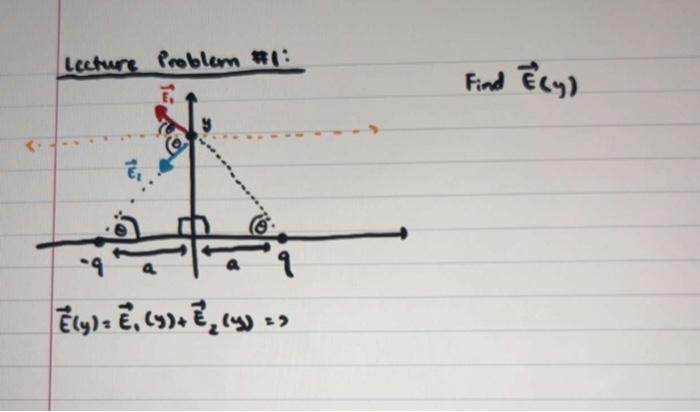 Lecture Problem #1:
Find E⃗(y)
E⃗₁
y
θ
θ
E⃗₂
θ
θ
-q
a
a
q
E⃗(y) = E⃗₁(y) + E⃗₂(y) =>